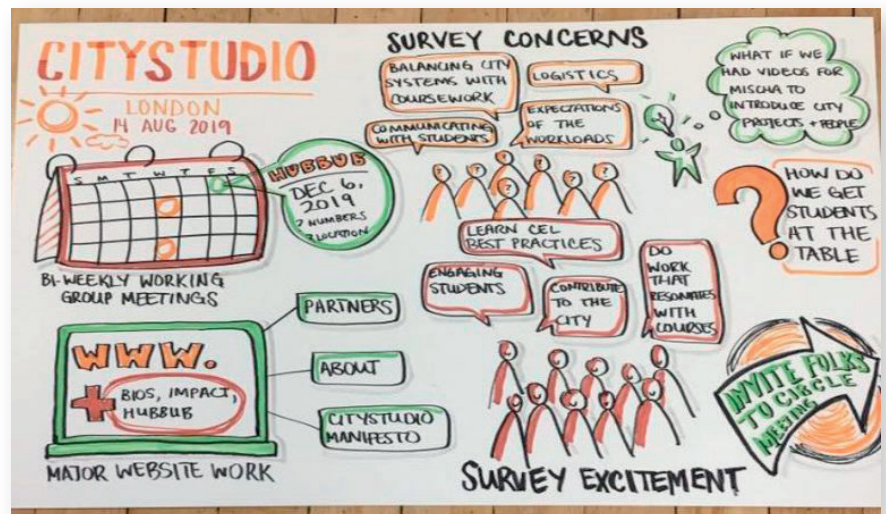 CITYSTUDIO
LONDON
14 AUG 2019
S M T W T F S
HUBBUB
DEC 6,
2019
? NUMBERS
? LOCATION
BI-WEEKLY WORKING
GROUP MEETINGS
WWW.
+ BIOS, IMPACT,
HUBBUB
MAJOR WEBSITE WORK
PARTNERS
ABOUT
CITYSTUDIO
MANIFESTO
SURVEY CONCERNS
BALANCING CITY
SYSTEMS WITH
COURSEWORK
LOGISTICS
COMMUNICATING
WITH STUDENTS
EXPECTATIONS
OF THE
WORKLOADS
? ? ? ? ? ?
LEARN CEL
BEST PRACTICES
ENGAGING
STUDENTS
CONTRIBUTE
TO THE
CITY
DO
WORK
THAT
RESONATES
WITH
COURSES
SURVEY EXCITEMENT
WHAT IF WE
HAD VIDEOS FOR
MISCHA TO
INTRODUCE CITY
PROJECTS + PEOPLE
?
HOW DO
WE GET
STUDENTS
AT THE
TABLE
INVITE FOLKS
TO CIRCLE
MEETING